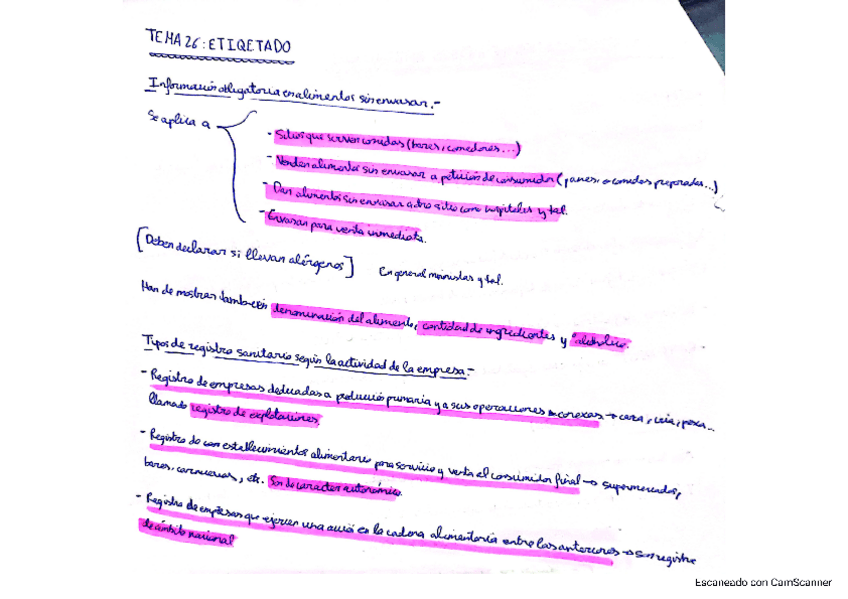 TEMA 26: ETIQETADO
Información obligatoria en alimentos sin envasar.-
Se aplica a
- Sitios que sirven comidas (bares, comedores...)
- Venden alimentos sin envasar a petición de consumidor (panes, o comidas preparadas...)
- Dan alimentos sin envasar a otro sitio como hospitales y tal.
- Envasan para venta inmediata.
[Deben declarar si llevan alérgenos] En general minoristas y tal.
Han de mostrar también denominación del alimento, cantidad de ingredientes y °alcohólico.
Tipos de registro sanitario según la actividad de la empresa.-
- Registro de empresas dedicadas a producción primaria y a sus operaciones conexas → caza, cría, pesca...
llamado registro de explotaciones.
- Registro de con establecimientos alimentarios para servicio y venta al consumidor final → supermercados,
bares, carnicerías, etc. Son de carácter autonómico.
- Registro de empresas que ejercen una acció en la cadena alimentaria entre las anteriores → son registro
de ámbito nacional
Escaneado con CamScanner